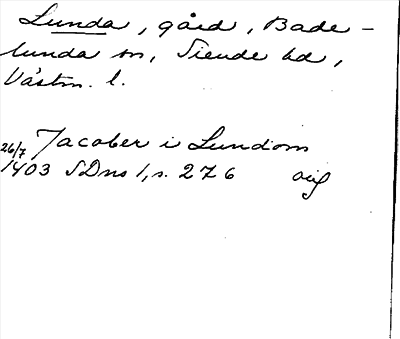 Lunda, gård, Bade-
lunda sn, Siende hd,
Västm. l.
Jacober i Lundom
26/7 1403 SDns 1, s. 276 orig